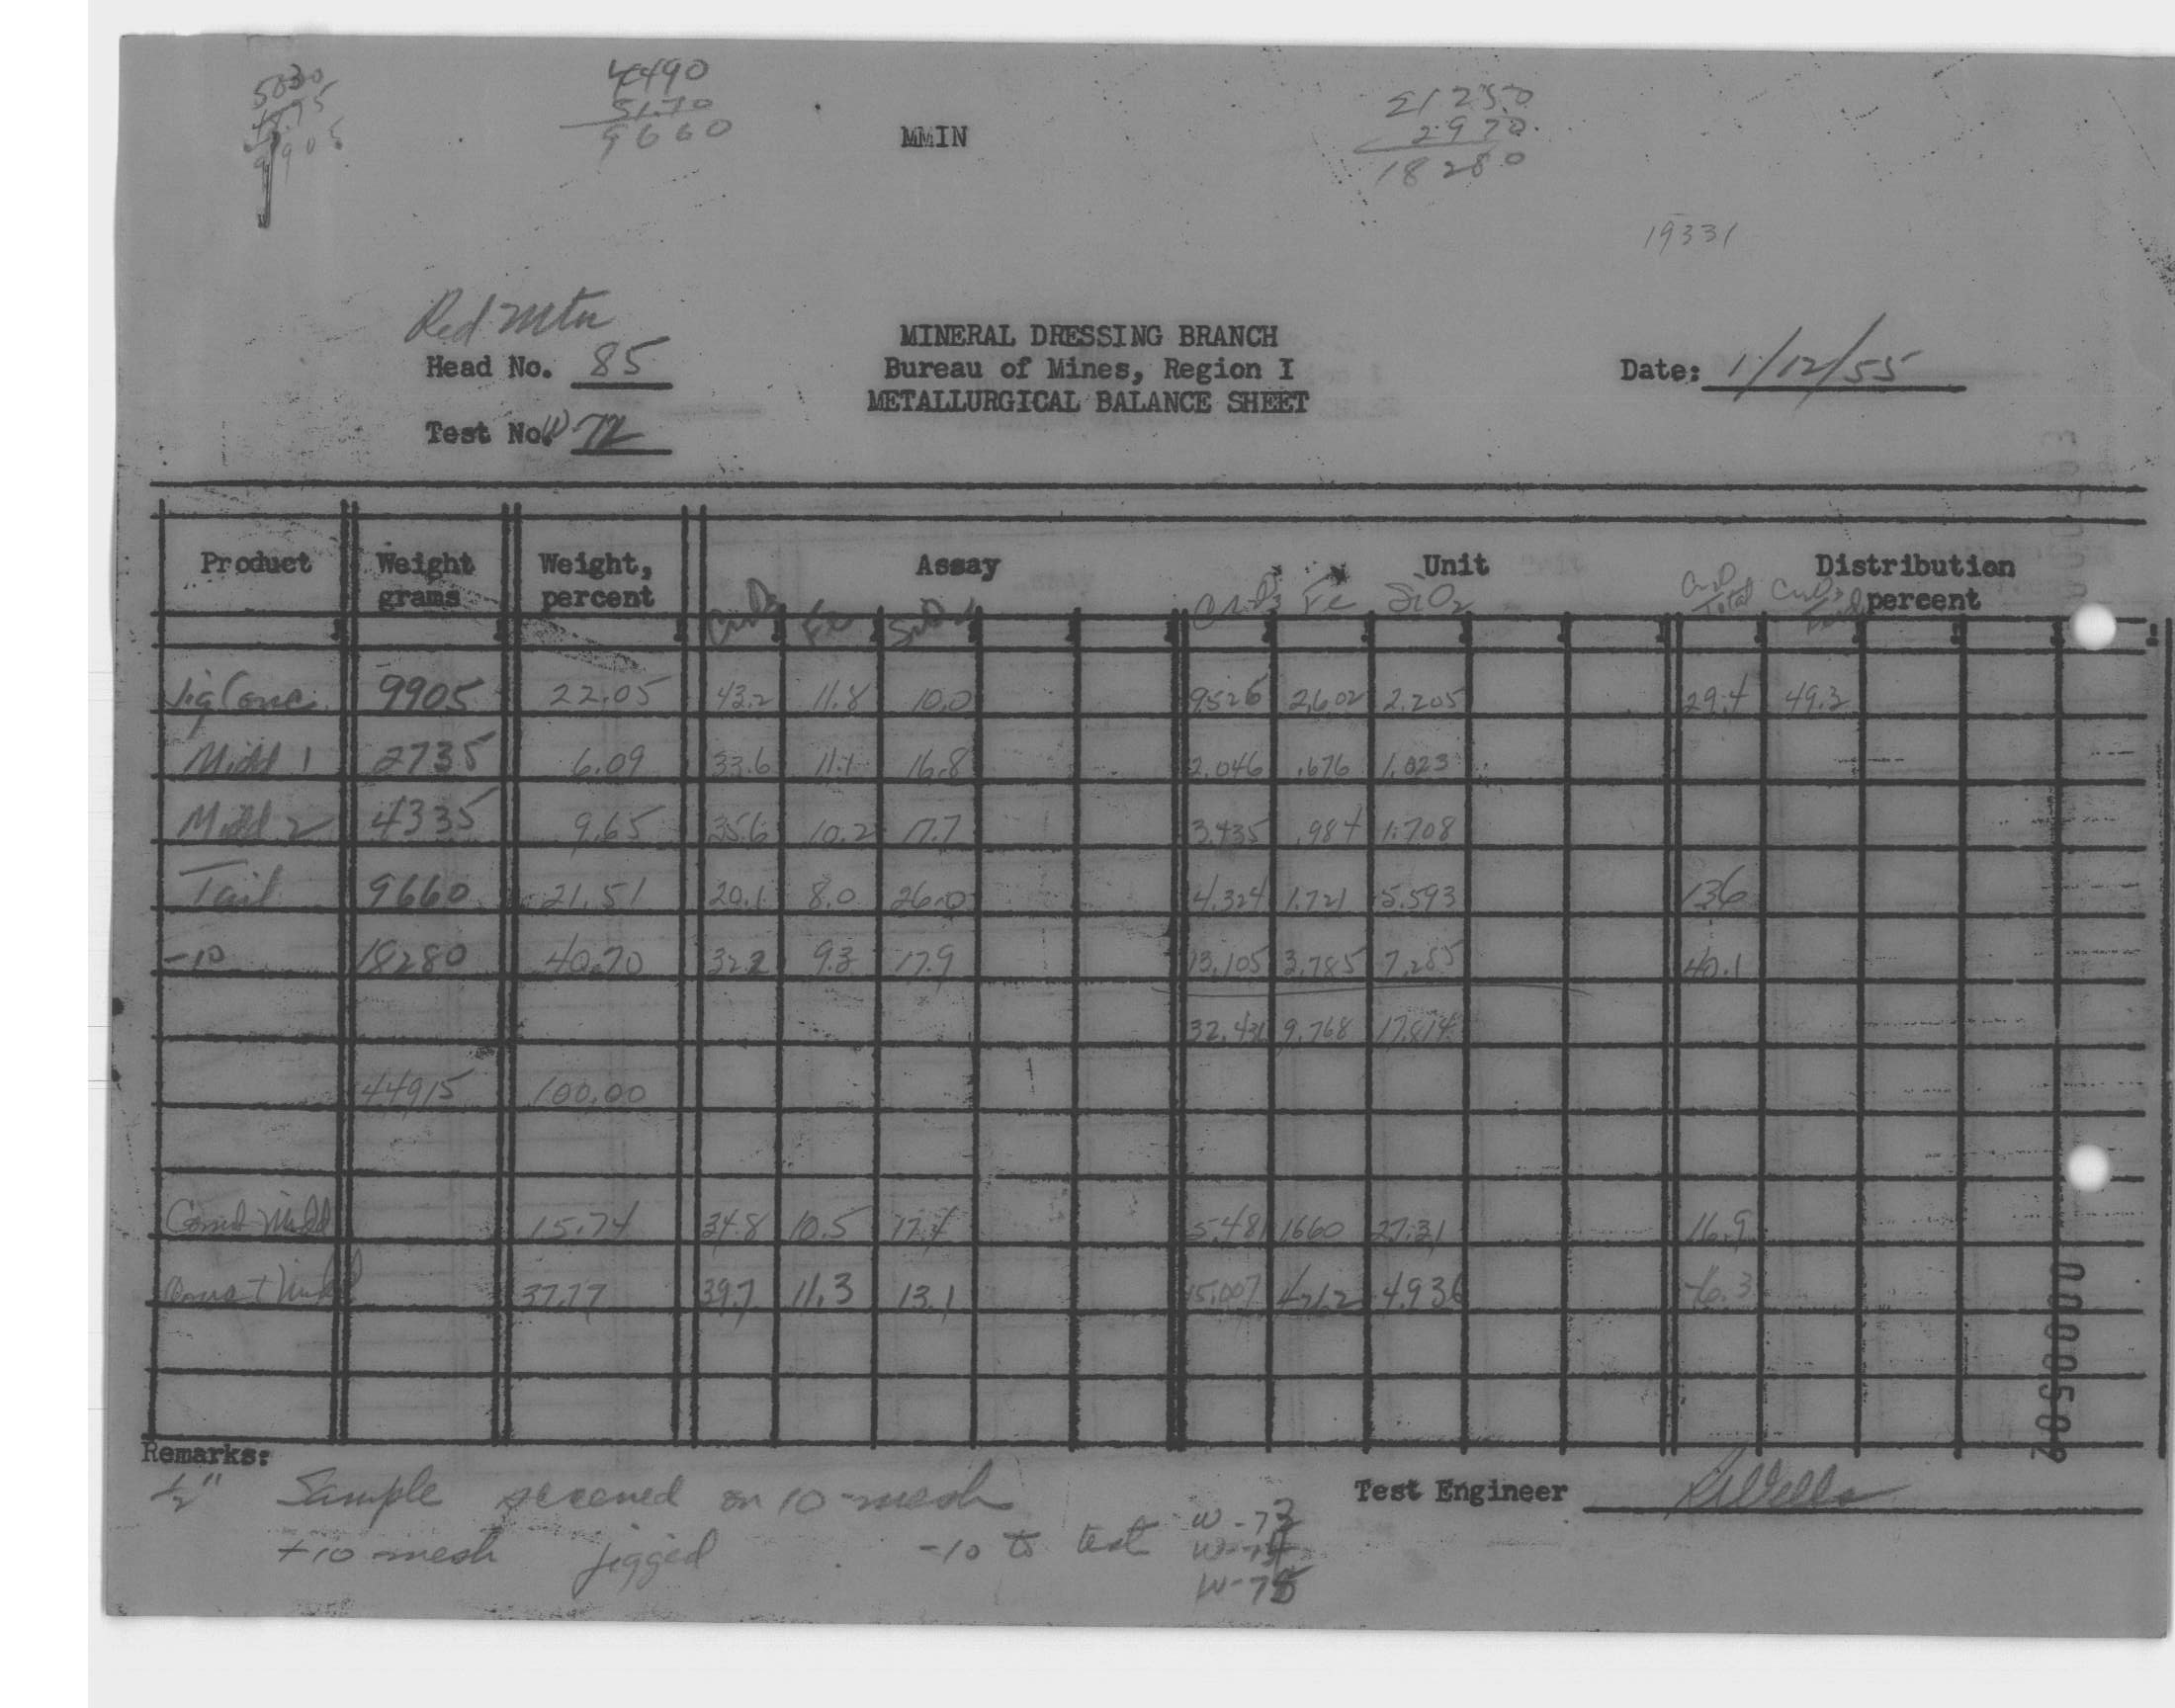 5030
4490
5170
9660
MMIN
21250
2970
18280
19331
Red Mtn
Head No. 85
Test No. W 72
MINERAL DRESSING BRANCH
Bureau of Mines, Region I
METALLURGICAL BALANCE SHEET
Date: 1/12/55
Product Weight grams Weight, percent Assay Unit Distribution percent
Cr2O3 Fe SiO2 Cr2O3 Fe SiO2 Total
Jig Conc. 9905 22.05 43.2 11.8 10.0 9.526 2.602 2.205 29.4 49.3
Midd 1 2735 6.09 33.6 11.1 16.8 2.046 .676 1.023
Midd 2 4335 9.65 35.6 10.2 17.7 3.435 .984 1.708
Tail 9660 21.51 20.1 8.0 26.0 4.324 1.721 5.593 13.6
-10 18280 40.70 32.2 9.3 17.9 13.105 3.785 7.285 40.1
32.431 9.768 17.814
44915 100.00
Comb Midd 15.74 34.8 10.5 17.4 5.481 1660 27.31 16.9
Conc + Midd 37.77 39.7 11.3 13.1 15.007 4.212 4.936
Remarks:
1/2" Sample screened on 10-mesh
+10 mesh jigged -10 to test W-73
W-74
W-75
Test Engineer RWells
0000502